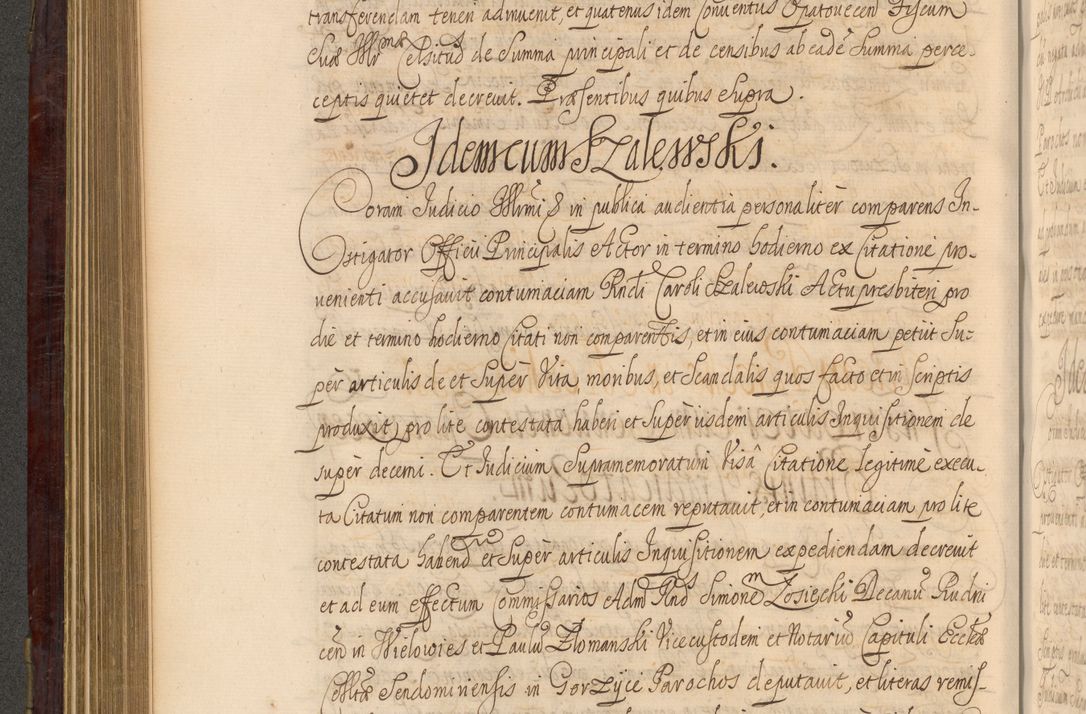 transferendam teneri admuenit, et quatenus idem Conventus Opatovecen Fiscum
Suæ Illrmæ Celsitud̃s de Summa principali et de censibus ab eadẽ Summa perce-
ceptis quietet decrevit. Præsentibus quibus Supra.
Idem cum Szalewski.
Coram Judicio Illrmi & in publica audientia personalitèr comparens In-
stigator Officii Principalis Actor in termino hodierno ex Citatione pro-
venienti accusavit contumaciam Rndi Caroli Szalewski Actu presbiteri pro
die et termino hodierno Citati non comparentis, et in eius contumaciam petiit Su-
pèr articulis de et Supèr Vita moribus, et Scandalis quos facto et in Scriptis
produxit, pro lite contestata haberi et Supèr iisdem articulis Inquisitionem de
supèr decerni. Et Judicium Supramemoratum Visâ Citatione legitimè execu-
ta Citatum non comparentem contumacem reputavit, et in contumaciam pro lite
contestata habend̃o et Supèr articulis Inquisitionem expediendam decrevit
et ad eum effectum Commissarios Adm Rnd̃s Simonem Zosięcki Decanũ Rudni
ceñ in Wielowies et Paulũ Złomanski Vicecustodem et Notariũ Capituli Eccleæ
Colltæ Sendomiriensis in Gorzyce Parochos deputavit, et literas remis-